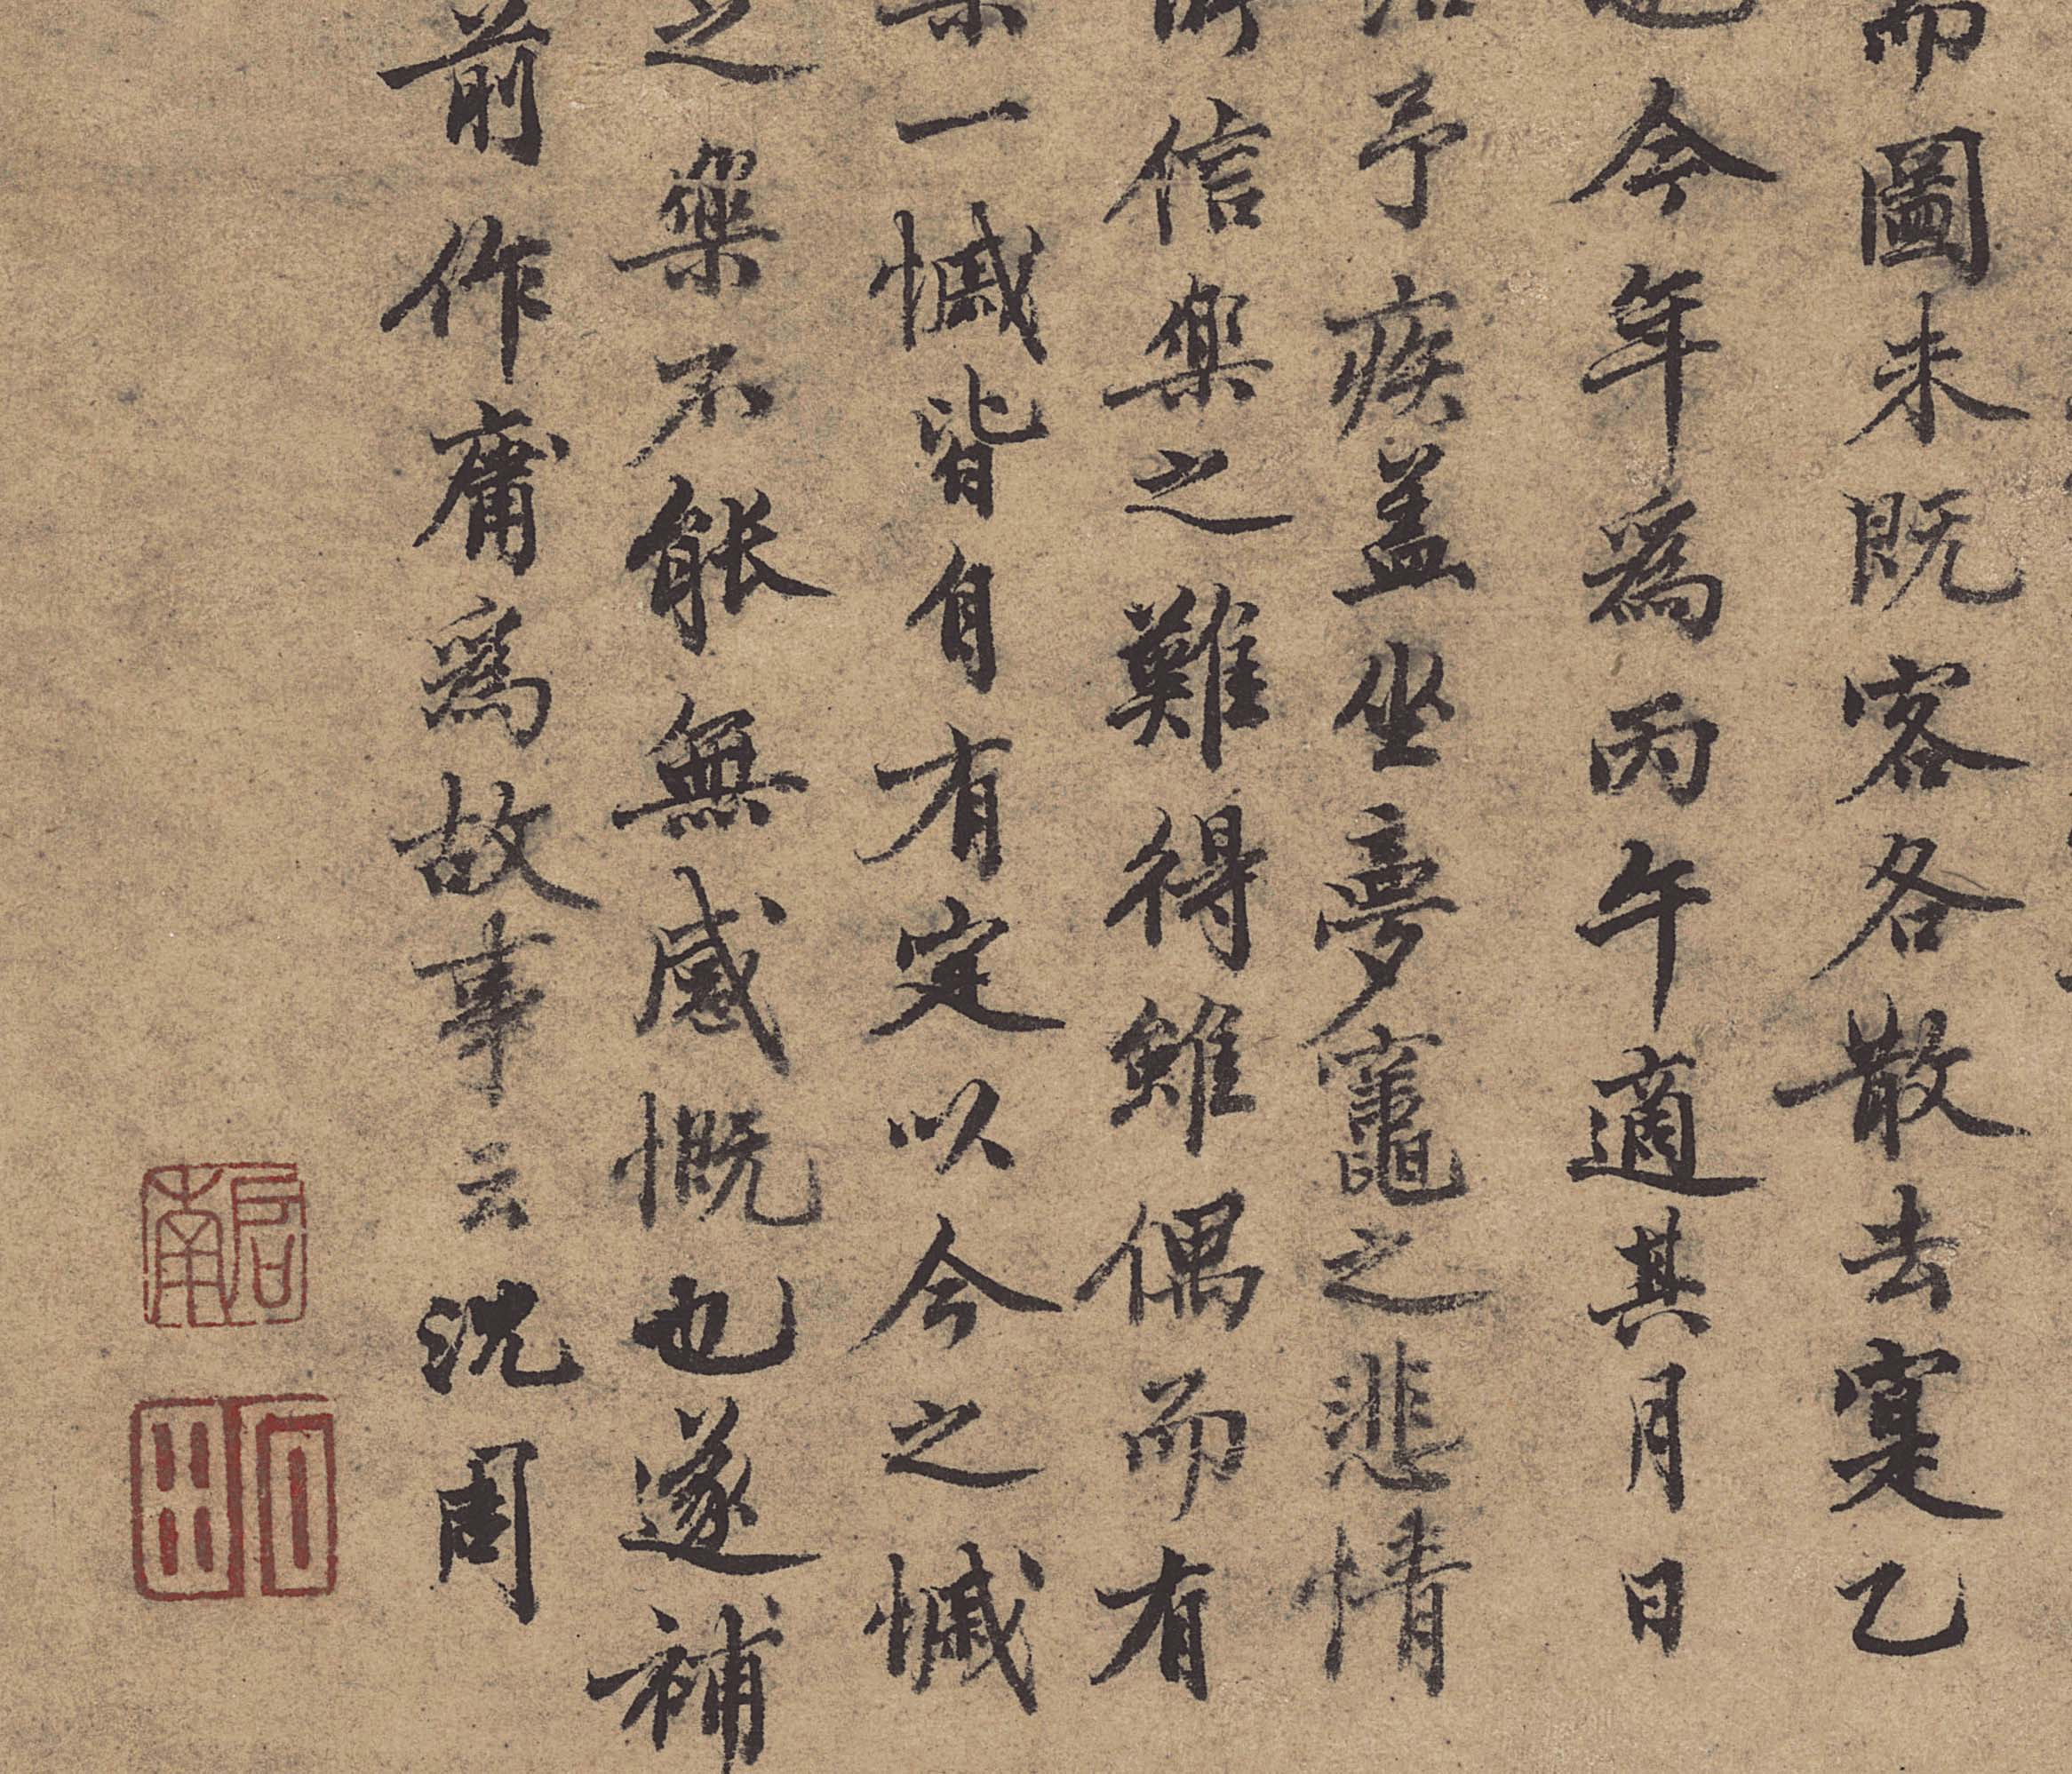 而圖未既客各散去寞乙
今年爲丙午適其月日
治予疾盖坐夢竈之悲情
所信樂之難得雖偶而有
樂一慽皆自有定以今之慽
之樂不能無感慨也遂補
前作庸爲故事云沈周
啟南
石田